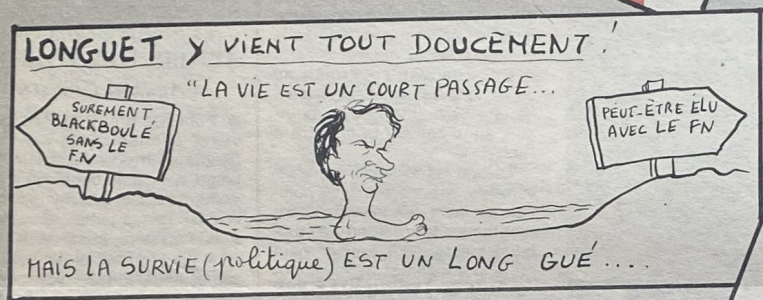 LONGUET Y VIENT TOUT DOUCEMENT!
"LA VIE EST UN COURT PASSAGE...
SUREMENT
BLACKBOULÉ
SANS LE
F.N
PEUT-ÊTRE ÉLU
AVEC LE FN
MAIS LA SURVIE (politique) EST UN LONG GUÉ....